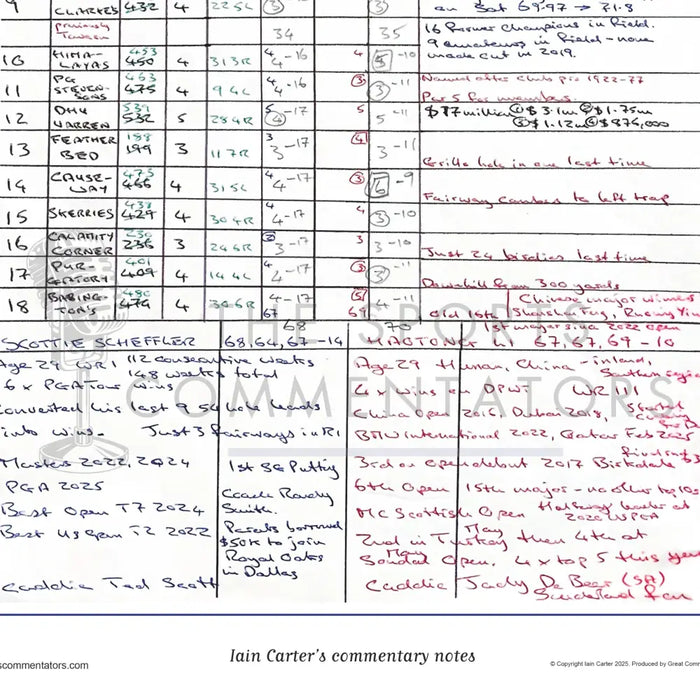 9 CLARKES 432 4 225L 3 3
on Sat 69.97 → 71.8
previously Tavern 34 35
16 former champions in field.
9 amateurs in field - none
made cut in 2019.
10 HIMA-LAYAS 453 450 4 313R 4 4-16 4 5-10
11 PG STEVEN-SONS 463 475 4 94L 4 4-16 3 3-11
Named after club pro 1922-77
12 DHU VARREN 539 532 5 284R 5 4-17 5 5-11
Par 5 for members.
$17 million ① $3.1m ② $1.75m
③ $1.12m ④ $876,000
13 FEATHER BED 188 199 3 117R 3 3-17 4 3-11
Grillo hole in one last time
14 CAUSE-WAY 473 466 4 315L 4 4-17 3 6-9
Fairway cambers to left trap
15 SKERRIES 438 429 4 304R 4 4-17 4 3-10
16 CALAMITY CORNER 230 236 3 246R 2 3-17 3 3-10
Just 24 birdies last time
17 PUR-GATORY 401 409 4 144L 4 4-17 3 3-11
Downhill from 300 yards
18 BABING-TON'S 480 474 4 306R 4 4-17 5 4-11
67 69
Old 16th
Chinese major winners
Shanshan Feng, Ruoning Yin
68 70
1st major since 2022 Open
THE SPORTS
COMMENTATORS
SCOTTIE SCHEFFLER 68,64,67 -14 HAOTONG LI 67,67,69 -10
Age 29 WR1 112 consecutive weeks
148 weeks total
6 x PGA Tour wins
Converted his last 9 54 hole leads
into wins. Just 3 fairways in R1
Masters 2022, 2024
PGA 2025
Best Open T7 2024
Best US Open T2 2022
Caddie Ted Scott
1st SG Putting
Coach Randy
Smith.
Parents borrowed
$50K to join
Royal Oaks
in Dallas
Age 29 Hunan, China - inland,
Southern region
4 x wins on DPWT WR111
China Open 2016, Dubai 2018,
BMW International 2022, Qatar Feb 2025
3rd on Open debut 2017 Birkdale
6th Open 15th major - no other top 10s
MC Scottish Open Halfway leader at
2020 USPGA
2nd in Turkey May then 4th at
Soudal Open. May 4 x top 5 this year
Caddie Jady De Beer (SA)
Sunderland fan
scommentators.com
Iain Carter's commentary notes
© Copyright Iain Carter 2025, Produced by Great Comm